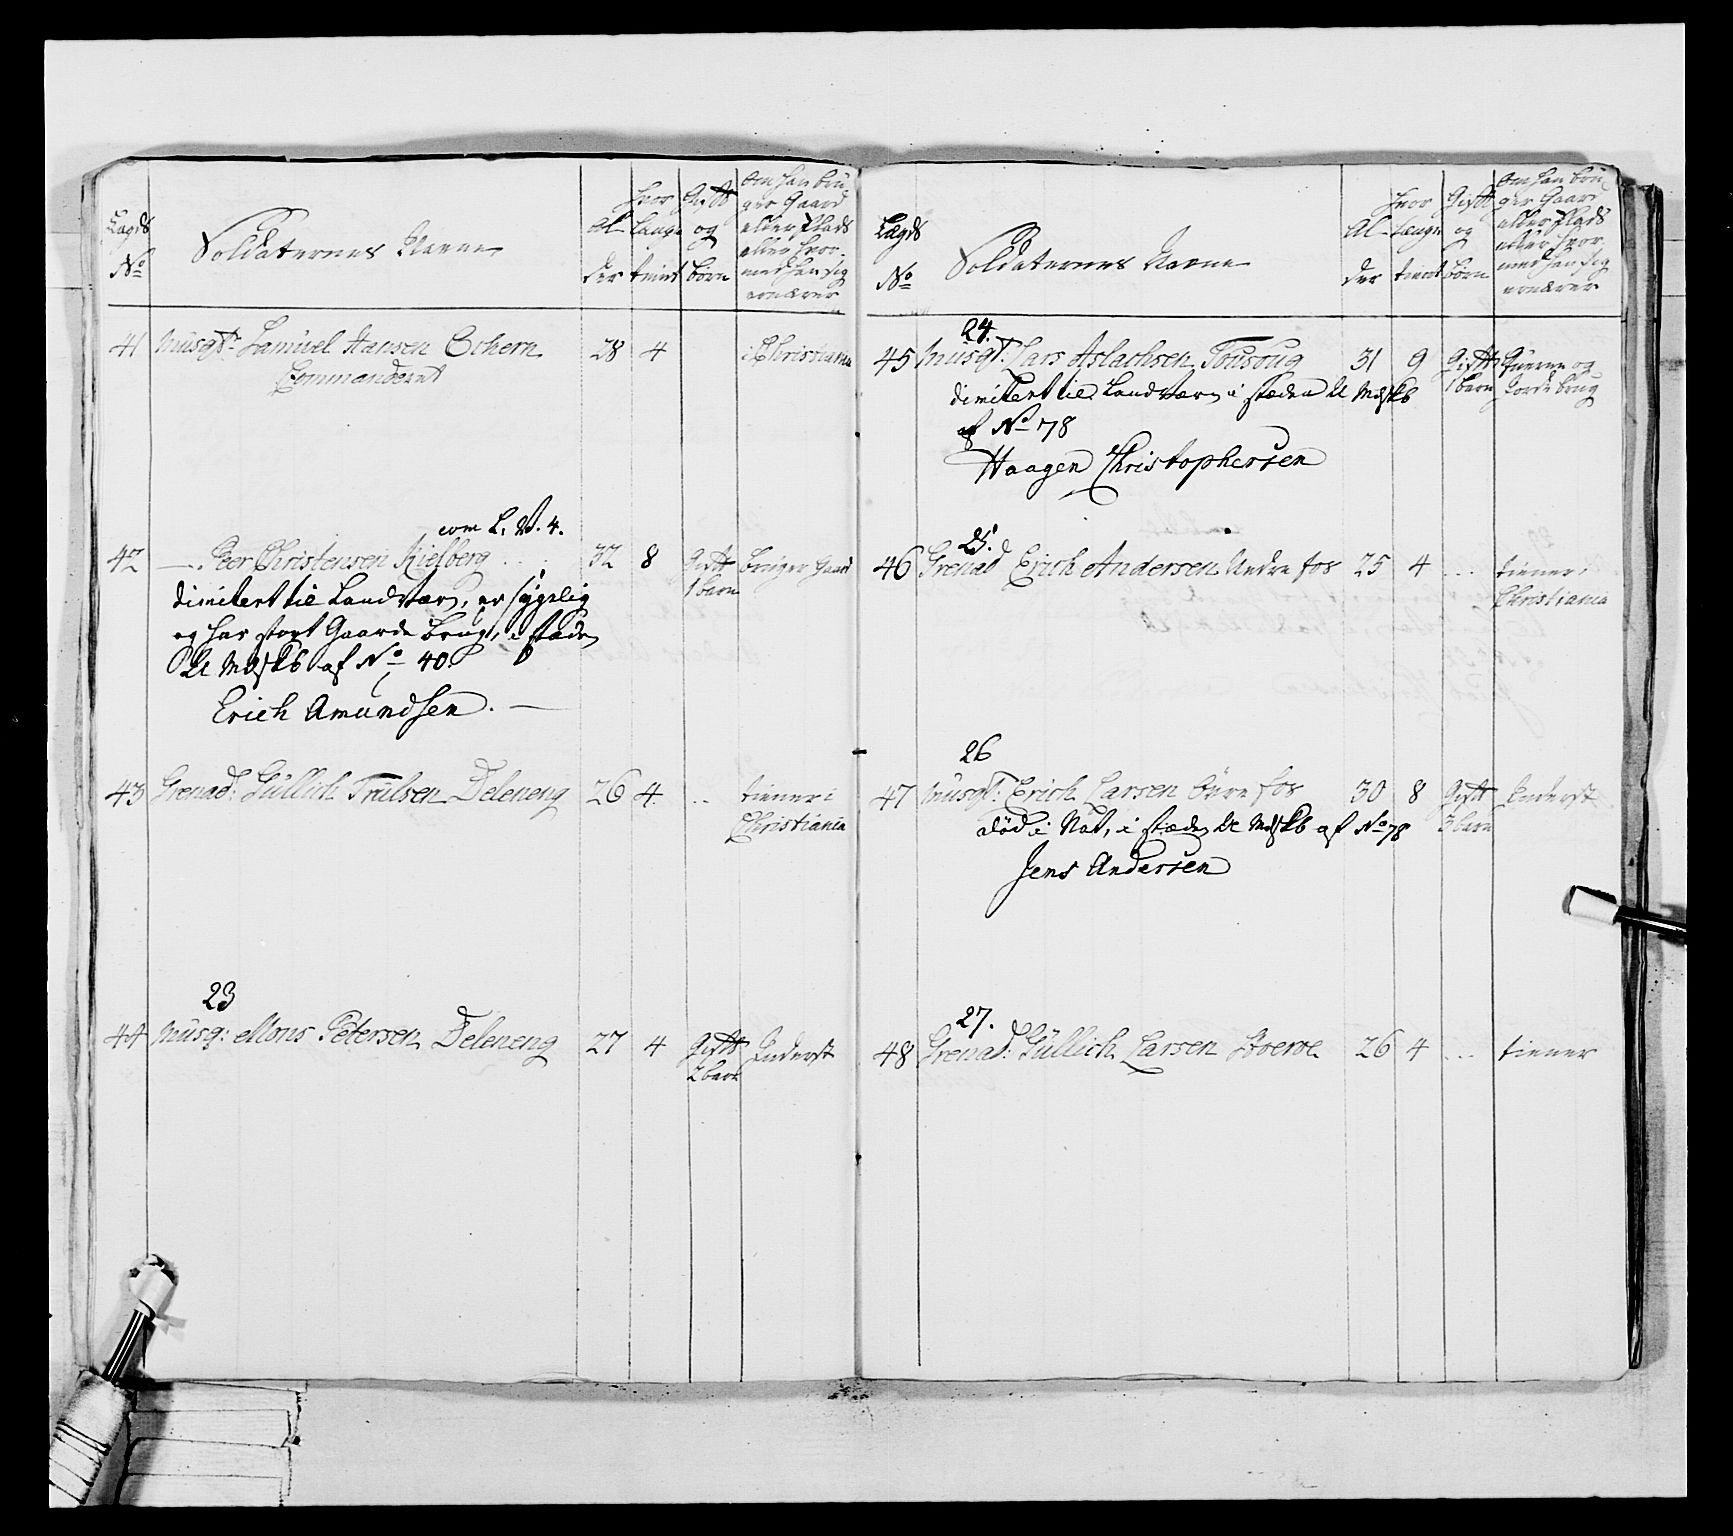 Lægds
No
Soldaternes Navne
Al-
der
hvor
længe
tient
Gift
og
børn
Om han bru-
ger Gaard
eller Plads
eller hvor-
med han sig
ernærer
41 Musqt. Samuel Hansen Ochern 28 4 i Christiania
Commanderet
com L. V. 4.
42 — Peer Christensen Kielberg 32 8 Gift bruger Gaard
1 barn
dimitert til Landværn, er sygelig
og har stort Gaarde brug, i stæden
U Mdskb af No 40.
Erich Amundsen.
43 Grenad: Gullich Trulsen Deleneng 26 4 .. tiener i
Christiania
23
44 Musq: Mons Petersen Deleneng 27 4 Gift Inderst
2 barn
Lægds
No
Soldaternes Navne
Al-
der
hvor
længe
tient
Gift
og
børn
Om han bru-
ger Gaard
eller Plads
eller hvor-
med han sig
ernærer
24.
45 Musqt: Lars Aslachsen Tousoug 31 9 Gift Qverne og
1 barn Jorde brug
dimitert til Landværn i stæden U Mdskb
af No 78
Haagen Christophersen
25.
46 Grenad Erich Andersen Undre fos 25 4 ... tiener i
Christiania
26
47 Musqt: Erich Larsen øvre fos 30 8 Gift Inderst
3 barn
død i Nat, i stæden U Mdskb af No 78
Jens Andersen
27.
48 Grenad: Gullich Larsen 26 4 ... tiener